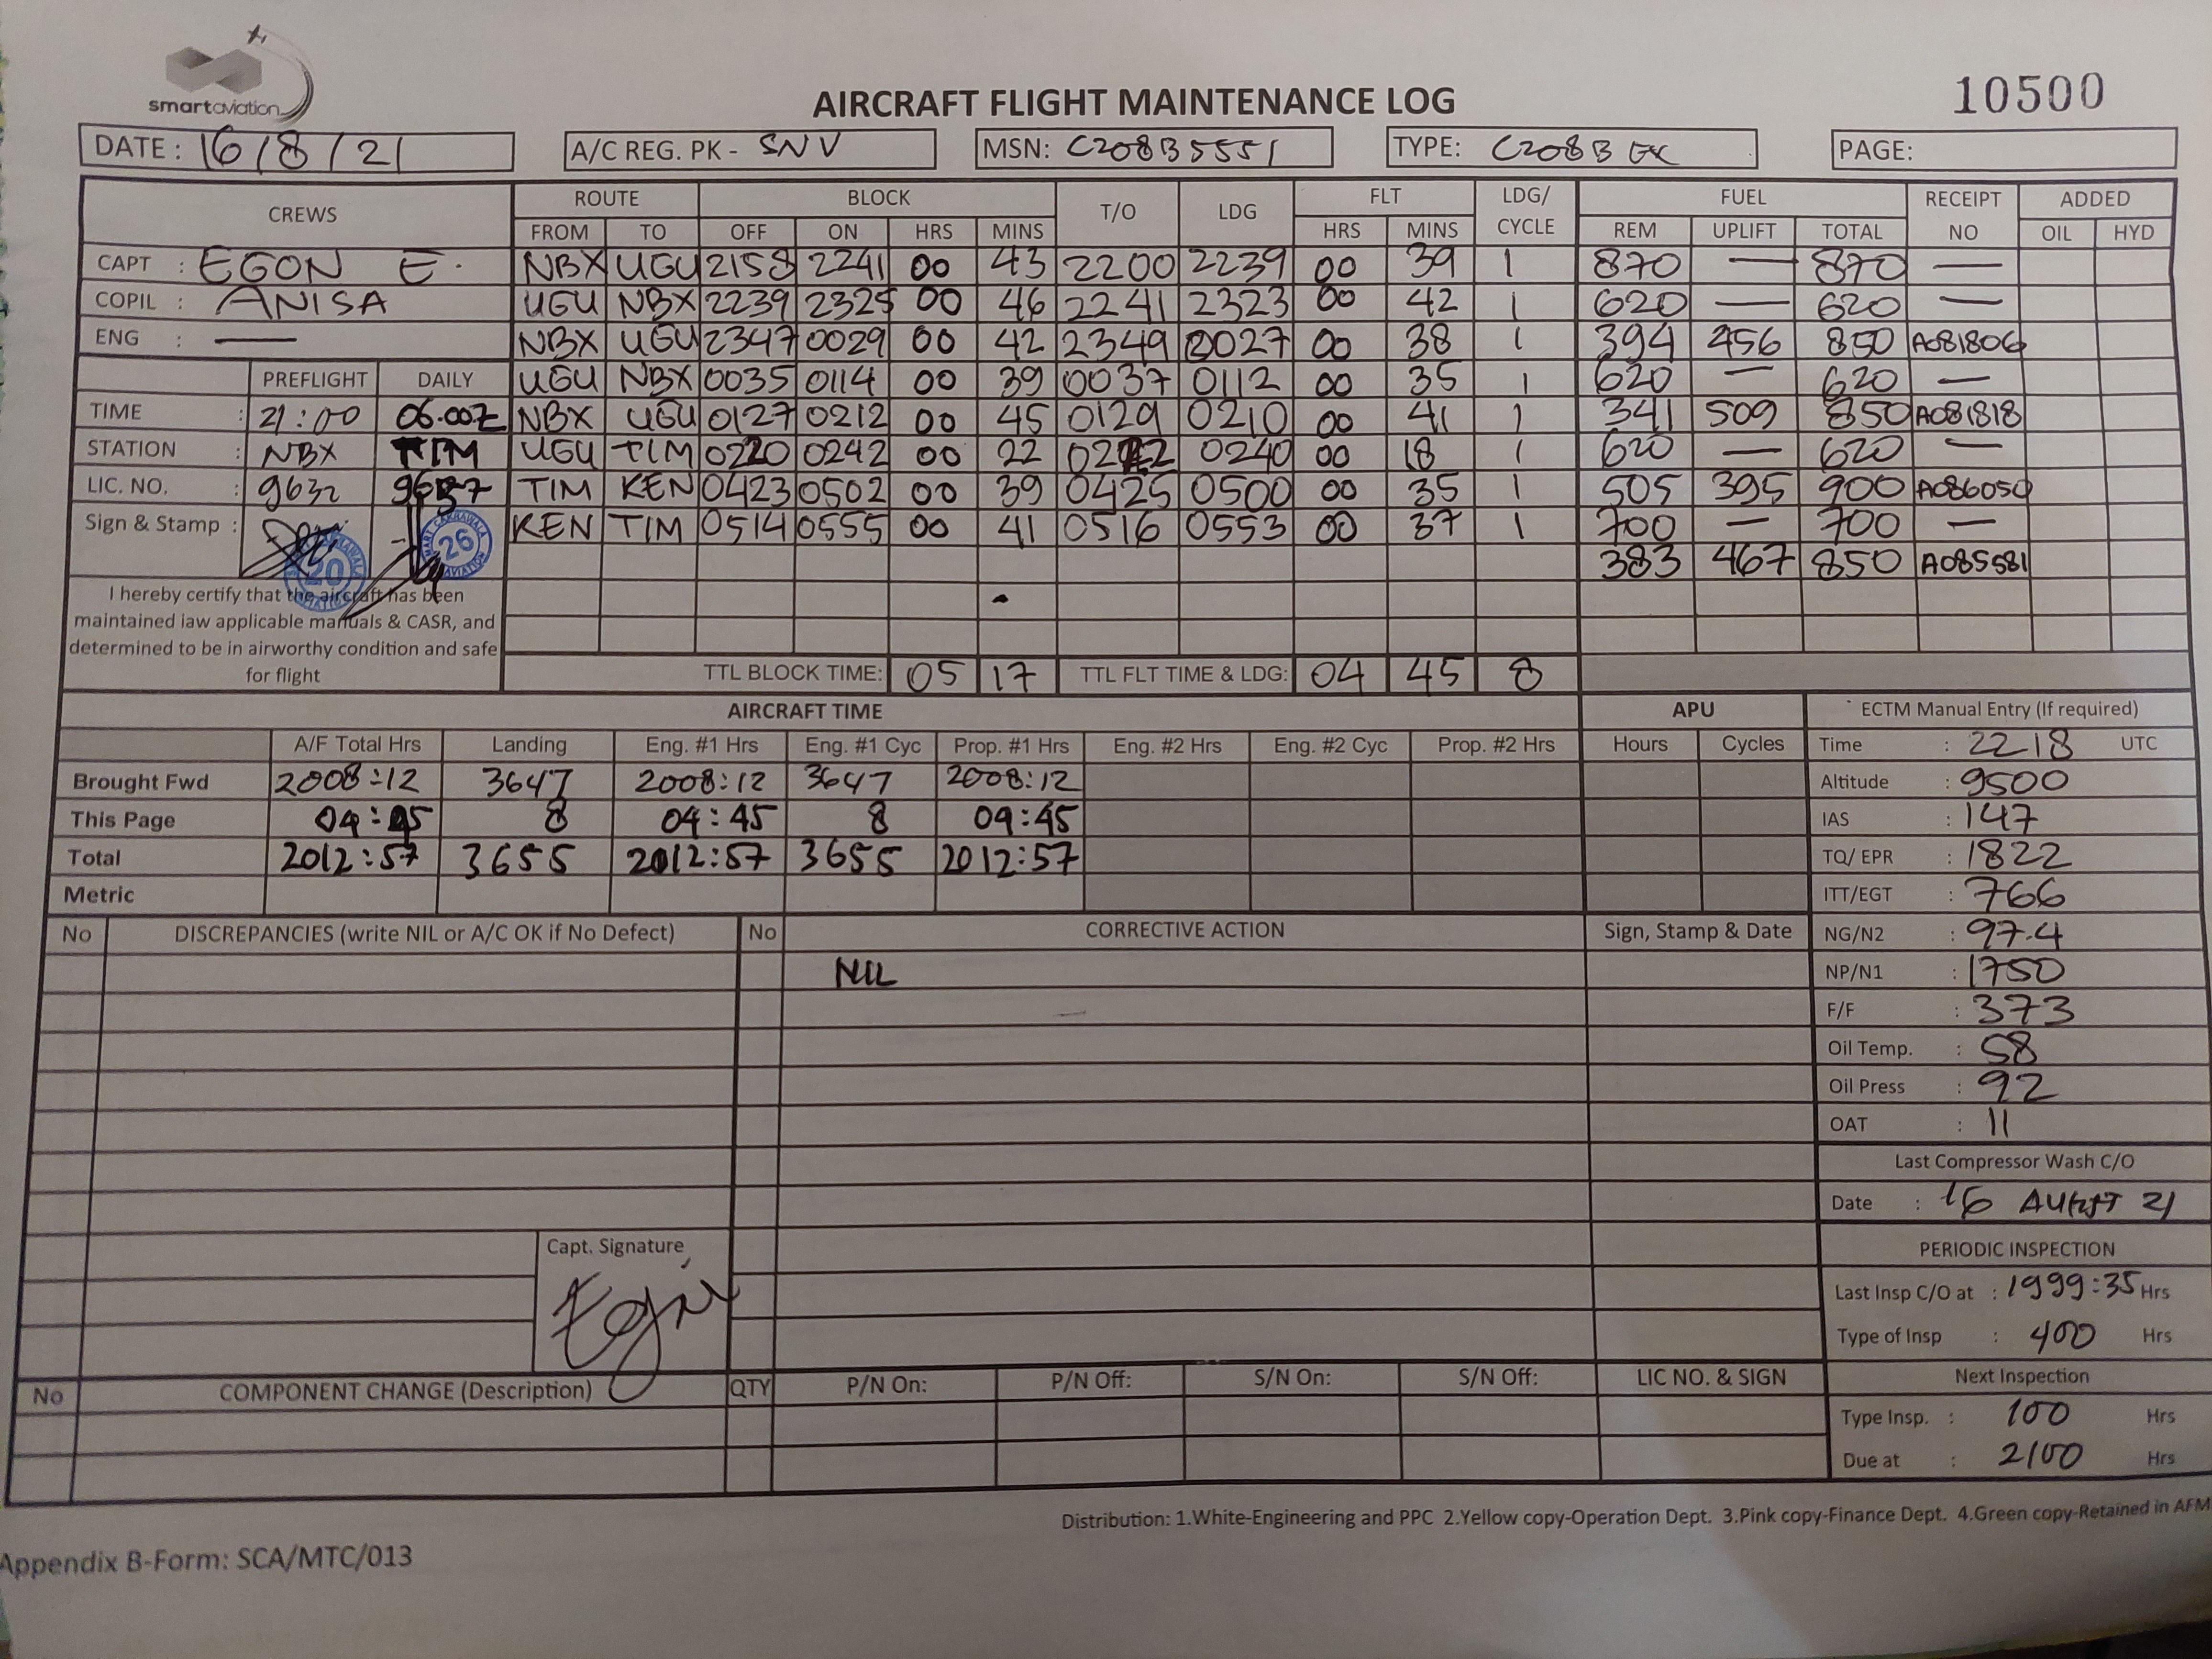 smartaviation
AIRCRAFT FLIGHT MAINTENANCE LOG
10500
DATE : 16/8/21
A/C REG. PK - SNV
MSN: C208B5551
TYPE: C208B EX
PAGE:
CREWS ROUTE BLOCK T/O LDG FLT LDG/ CYCLE FUEL RECEIPT NO ADDED
FROM TO OFF ON HRS MINS HRS MINS REM UPLIFT TOTAL OIL HYD
CAPT : EGON E. NBX UGU 2158 2241 00 43 2200 2239 00 39 1 870 — 870 —
COPIL : ANISA UGU NBX 2239 2325 00 46 2241 2323 00 42 1 620 — 620 —
ENG : — NBX UGU 2347 0029 00 42 2349 0027 00 38 1 394 456 850 A081806
PREFLIGHT DAILY UGU NBX 0035 0114 00 39 0037 0112 00 35 1 620 — 620 —
TIME : 21:00 06.00Z NBX UGU 0127 0212 00 45 0129 0210 00 41 1 341 509 850 A081818
STATION : NBX TIM UGU TIM 0220 0242 00 22 0222 0240 00 18 1 620 — 620 —
LIC. NO. : 9632 TIM KEN 0423 0502 00 39 0425 0500 00 35 1 505 395 900 A086050
Sign & Stamp : 20 26 KEN TIM 0514 0555 00 41 0516 0553 00 37 1 700 — 700 —
383 467 850 A085581
I hereby certify that the aircraft has been
maintained iaw applicable manuals & CASR, and
determined to be in airworthy condition and safe
for flight
TTL BLOCK TIME: 05 17 TTL FLT TIME & LDG: 04 45 8
AIRCRAFT TIME APU
A/F Total Hrs Landing Eng. #1 Hrs Eng. #1 Cyc Prop. #1 Hrs Eng. #2 Hrs Eng. #2 Cyc Prop. #2 Hrs Hours Cycles
Brought Fwd 2008:12 3647 2008:12 3647 2008:12
This Page 04:45 8 04:45 8 04:45
Total 2012:57 3655 2012:57 3655 2012:57
Metric
ECTM Manual Entry (If required)
Time : 2218 UTC
Altitude : 9500
IAS : 147
TQ/ EPR : 1822
ITT/EGT : 766
NG/N2 : 97.4
NP/N1 : 1750
F/F : 373
Oil Temp. : 58
Oil Press : 92
OAT : 11
Last Compressor Wash C/O
Date : 16 AUGUST 21
PERIODIC INSPECTION
Last Insp C/O at : 1999:35 Hrs
Type of Insp : 400 Hrs
Next Inspection
Type Insp. : 100 Hrs
Due at : 2100 Hrs
No DISCREPANCIES (write NIL or A/C OK if No Defect) No CORRECTIVE ACTION Sign, Stamp & Date
NIL
Capt. Signature
No COMPONENT CHANGE (Description) QTY P/N On: P/N Off: S/N On: S/N Off: LIC NO. & SIGN
Distribution: 1.White-Engineering and PPC 2.Yellow copy-Operation Dept. 3.Pink copy-Finance Dept. 4.Green copy-Retained in AFM
Appendix B-Form: SCA/MTC/013